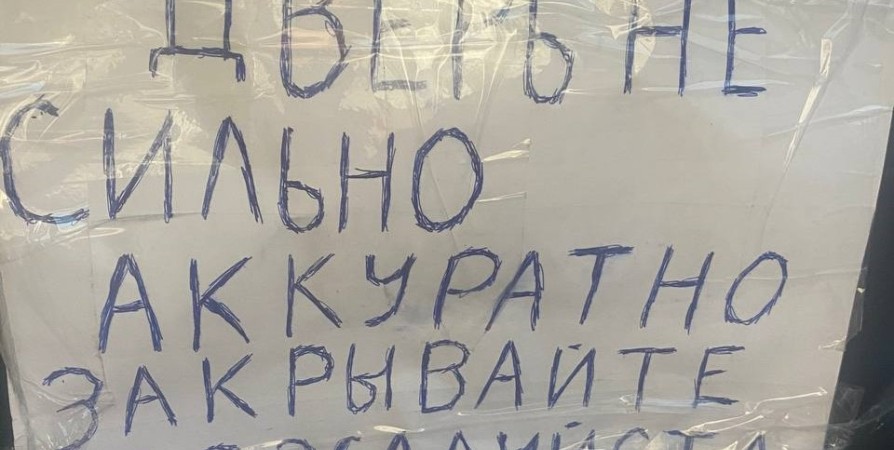 ДВЕРЬ НЕ
СИЛЬНО
АККУРАТНО
ЗАКРЫВАЙТЕ
ПОЖАЛУЙСТА